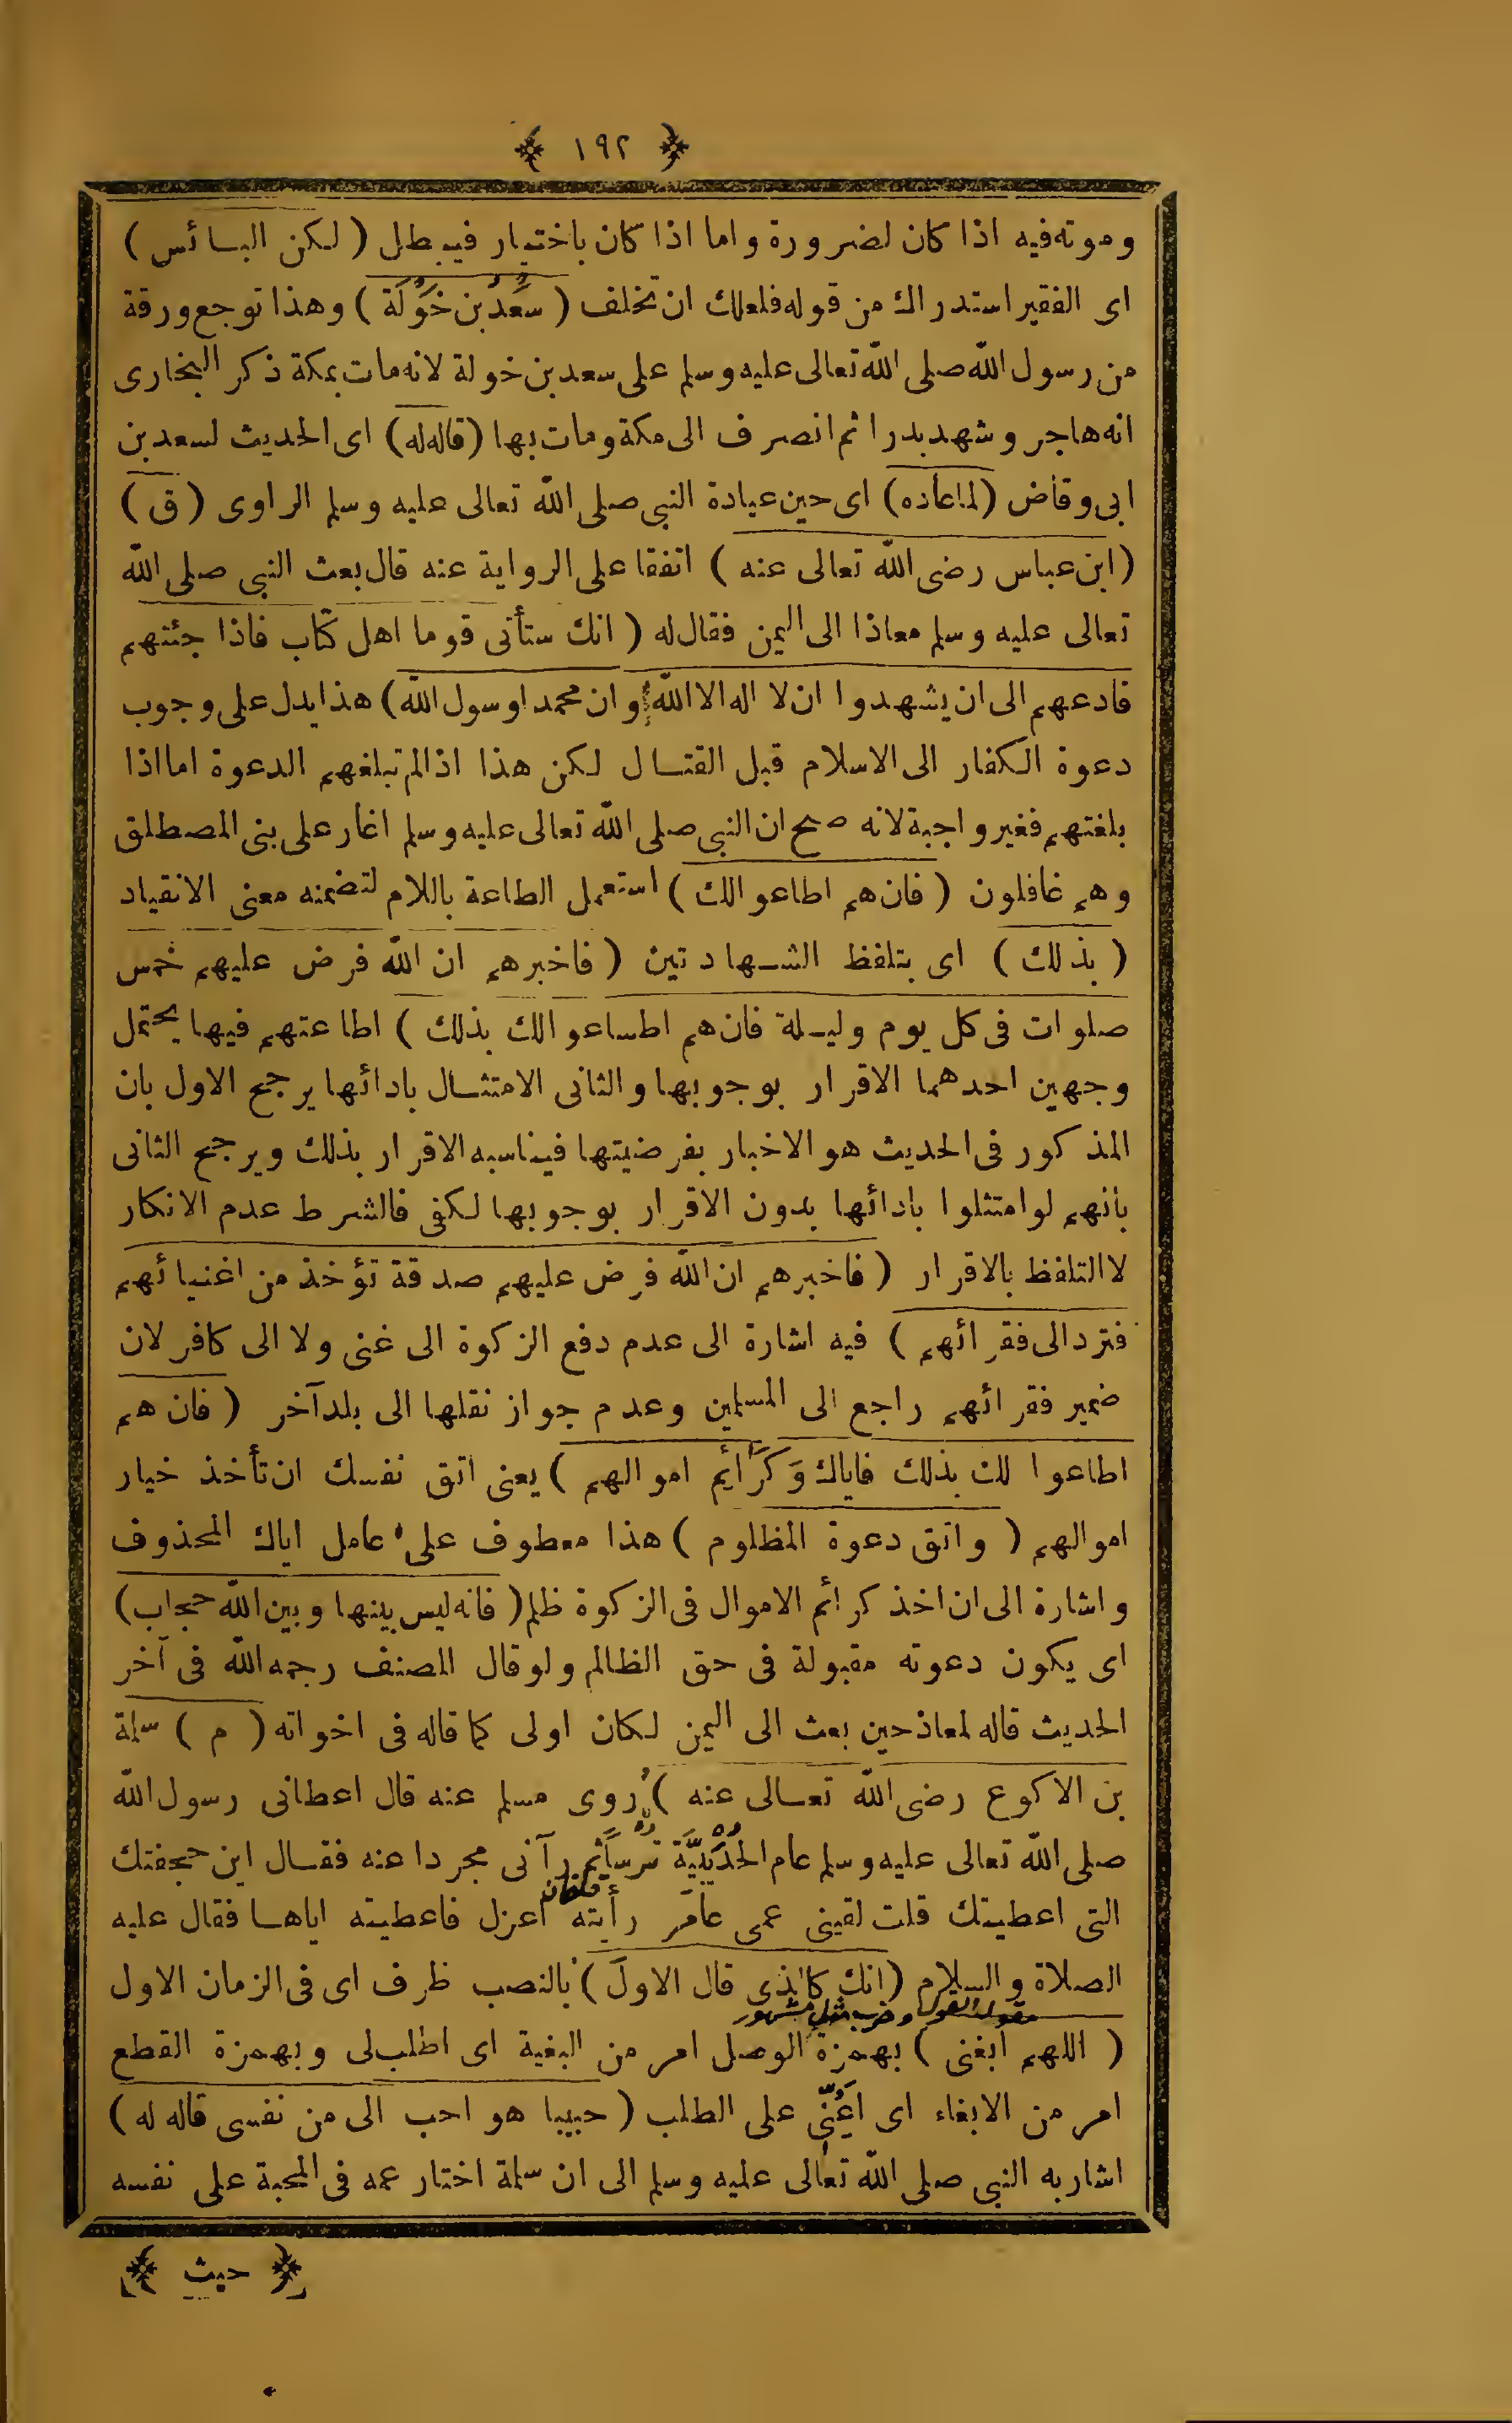 ١٩٢
وموته فيه اذا كان لضرورة واما اذا كان باختيار فيبطل ( لكن البائس )
اى الفقير استدراك من قوله فلعلك ان تخلف ( سَعْدُ بن خَوْلَة ) وهذا توجع ورقة
من رسول الله صلى الله تعالى عليه وسلم على سعد بن خولة لانه مات بمكة ذكر البخارى
انه هاجر وشهد بدرا ثم انصرف الى مكة ومات بها ( قاله له ) اى الحديث لسعد بن
ابى وقاض ( لما عاده ) اى حين عيادة النبى صلى الله تعالى عليه وسلم الراوى ( ق )
( ابن عباس رضى الله تعالى عنه ) اتفقا على الرواية عنه قال بعث النبى صلى الله
تعالى عليه وسلم معاذا الى اليمن فقال له ( انك ستأتى قوما اهل كتاب فاذا جئتهم
فادعهم الى ان يشهدوا ان لا اله الا الله وان محمدا وسول الله ) هذا يدل على وجوب
دعوة الكفار الى الاسلام قبل القتال لكن هذا اذا لم تبلغهم الدعوة اما اذا
بلغتهم فغير واجبة لانه صح ان النبى صلى الله تعالى عليه وسلم اغار على بنى المصطلق
وهم غافلون ( فان هم اطاعوا لك ) استعمل الطاعة باللام لتضمنه معنى الانقياد
( بذلك ) اى بتلفظ الشهادتين ( فاخبرهم ان الله فرض عليهم خمس
صلوات فى كل يوم وليلة فان هم اطاعوا لك بذلك ) اطاعتهم فيها يحتمل
وجهين احدهما الاقرار بوجوبها والثانى الامتثال بادائها يرجح الاول بان
المذكور فى الحديث هو الاخبار بفرضيتها فيناسبه الاقرار بذلك ويرجح الثانى
بانهم لو امتثلوا بادائها بدون الاقرار بوجوبها لكفى فالشرط عدم الانكار
لا التلفظ بالاقرار ( فاخبرهم ان الله فرض عليهم صدقة تؤخذ من اغنيائهم
فترد الى فقرائهم ) فيه اشارة الى عدم دفع الزكوة الى غنى ولا الى كافر لان
ضمير فقرائهم راجع الى المسلمين وعدم جواز نقلها الى بلد آخر ( فان هم
اطاعوا لك بذلك فاياك وَكَرَائم اموالهم ) يعنى اتق نفسك ان تأخذ خيار
اموالهم ( واتق دعوة المظلوم ) هذا معطوف على عامل اياك المحذوف
واشارة الى ان اخذ كرائم الاموال فى الزكوة ظلم ( فانه ليس بينها وبين الله حجاب )
اى يكون دعوته مقبولة فى حق الظالم ولو قال المصنف رحمه الله فى آخر
الحديث قاله لمعاذ حين بعث الى اليمن لكان اولى كما قاله فى اخواته ( م ) سلمة
بن الاكوع رضى الله تعالى عنه ) روى مسلم عنه قال اعطانى رسول الله
صلى الله تعالى عليه وسلم عام الحُدَيْبِيَّة ترسا ثم رآنى مجردا عنه فقال اين حجفتك
التى اعطيتك قلت لقينى عمى عامر رأيته اعزل فاعطيته اياها فقال عليه
الصلاة والسلام ( انك كالذى قال الاولَ ) بالنصب ظرف اى فى الزمان الاول
مقولة القول وضرب مثل مشهور
( اللهم ابغنى ) بهمزة الوصل امر من البغية اى اطلب لى وبهمزة القطع
امر من الابغاء اى اَعِنّى على الطلب ( حبيبا هو احب الى من نفسى قاله له )
اشار به النبى صلى الله تعالى عليه وسلم الى ان سلمة اختار عمه فى المحبة على نفسه
حيث